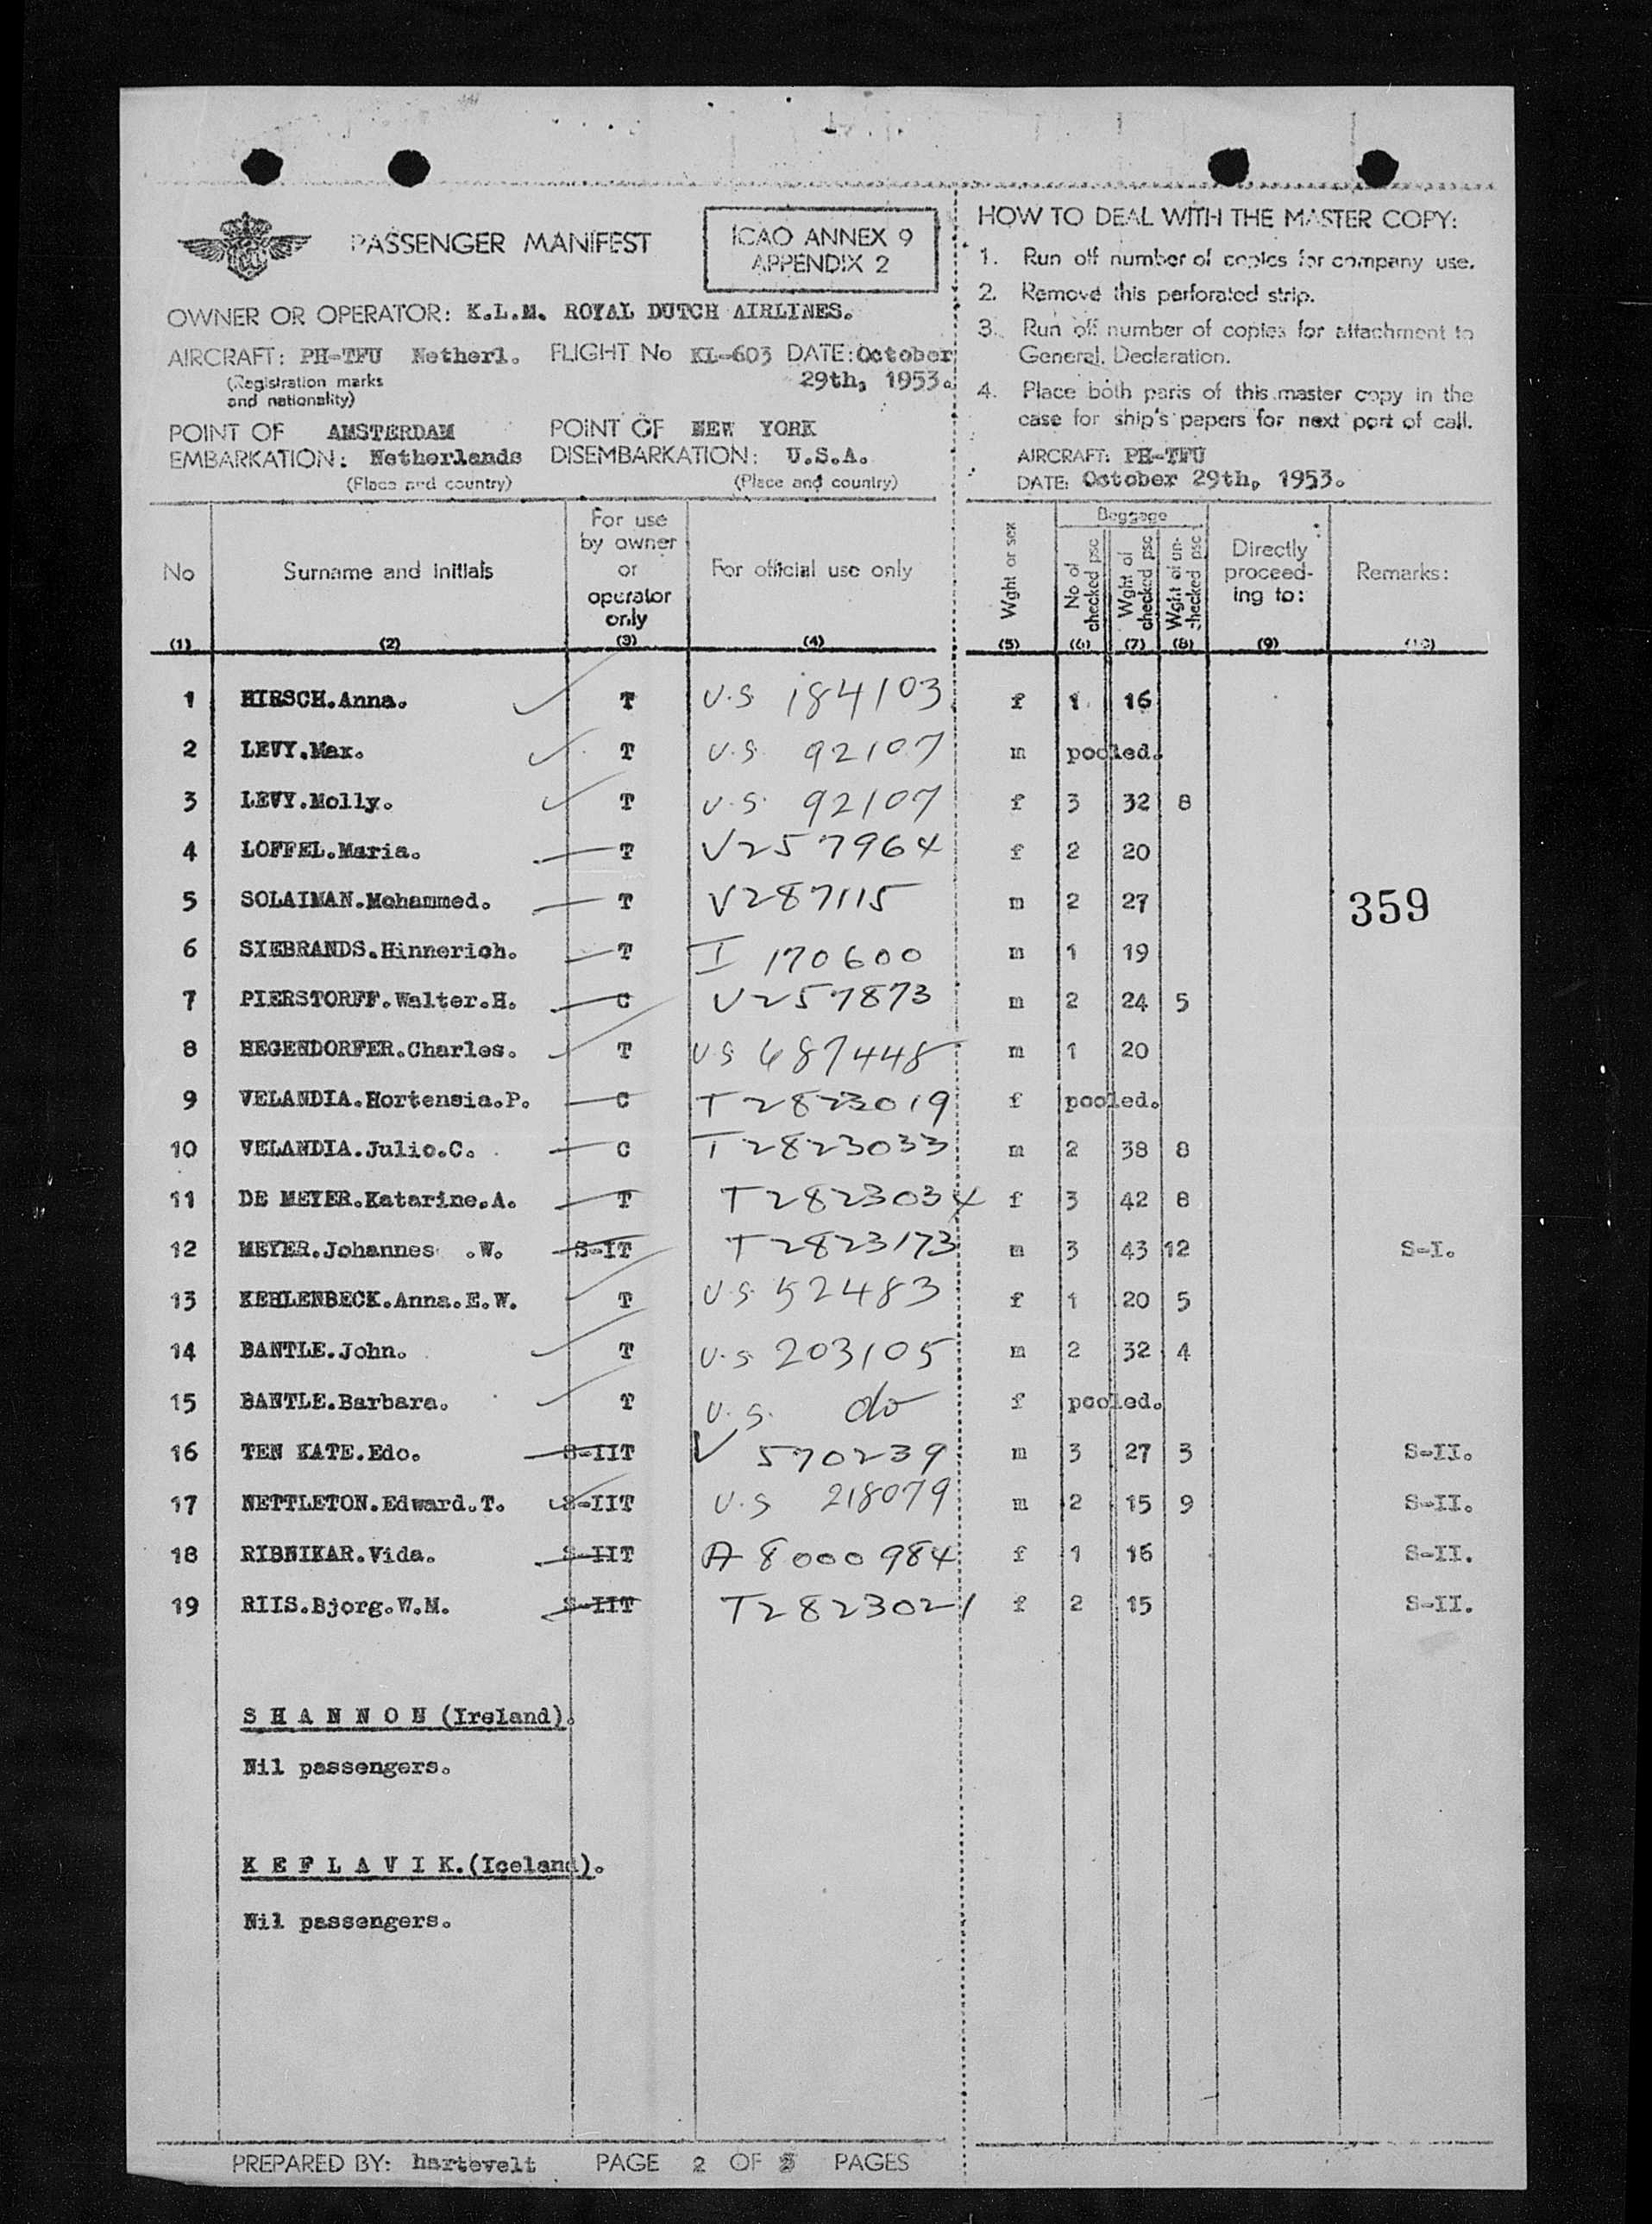 PASSENGER MANIFEST
ICAO ANNEX 9
APPENDIX 2
OWNER OR OPERATOR: K.L.M. ROYAL DUTCH AIRLINES.
AIRCRAFT: PH-TFU Netherl. FLIGHT No KL-603 DATE: October
(Registration marks 29th, 1953.
and nationality)
POINT OF AMSTERDAM POINT OF NEW YORK
EMBARKATION: Netherlands DISEMBARKATION: U.S.A.
(Place and country) (Place and country)
HOW TO DEAL WITH THE MASTER COPY:
1. Run off number of copies for company use.
2. Remove this perforated strip.
3. Run off number of copies for attachment to
General. Declaration.
4. Place both parts of this master copy in the
case for ship's papers for next port of call.
AIRCRAFT: PH-TFU
DATE: October 29th, 1953.
No Surname and initials For use by owner or operator only For official use only Wght or sex Baggage No of checked psc Wght of checked psc Wght of un-checked psc Directly proceed-ing to: Remarks:
(1) (2) (3) (4) (5) (6) (7) (8) (9) (10)
1 HIRSCH.Anna. T U.S 184103 f 1 16
2 LEVY.Max. T U.S. 92107 m pooled.
3 LEVY.Molly. T U.S. 92107 f 3 32 8
4 LOFFEL.Maria. T V257964 f 2 20
5 SOLAIMAN.Mohammed. T V287115 m 2 27 359
6 SIEBRANDS.Hinnerich. T I 170600 m 1 19
7 PIERSTORFF.Walter.H. C V257873 m 2 24 5
8 HEGENDORFER.Charles. T US 687448 m 1 20
9 VELANDIA.Hortensia.P. C T2823019 f pooled.
10 VELANDIA.Julio.C. C T2823033 m 2 38 8
11 DE MEYER.Katarine.A. T T2823034 f 3 42 8
12 MEYER.Johannes .W. S-IT T2823173 m 3 43 12 S-I.
13 KEHLENBECK.Anna.E.W. T U.S. 52483 f 1 20 5
14 BANTLE.John. T U.S 203105 m 2 32 4
15 BANTLE.Barbara. T U.S. do f pooled.
16 TEN KATE.Edo. S-IIT V 570239 m 3 27 3 S-II.
17 NETTLETON.Edward.T. S-IIT U.S 218079 m 2 15 9 S-II.
18 RIBNIKAR.Vida. S-IIT A 8000984 f 1 16 S-II.
19 RIIS.Bjorg.W.M. S-IIT T2823021 f 2 15 S-II.
S H A N N O N (Ireland).
Nil passengers.
K E F L A V I K. (Iceland).
Nil passengers.
PREPARED BY: hartevelt PAGE 2 OF PAGES